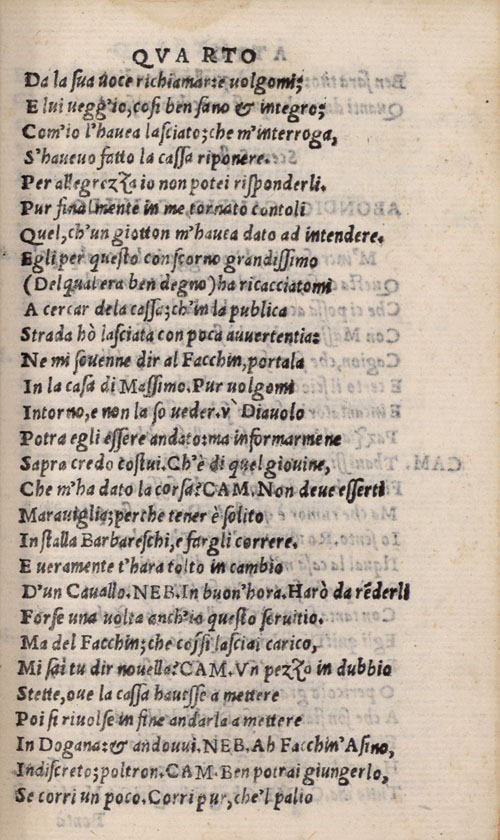 QVARTO
Da la sua uoce richiamarse uolgomi;
E lui uegg'io, cosi ben sano & integro;
Com'io l'hauea lasciato; che m'interroga,
S'haueuo fatto la cassa riponere.
Per allegrezza io non potei risponderli.
Pur finalmente in me tornato contoli
Quel, ch'un giotton m'hauea dato ad intendere.
Egli per questo con scorno grandissimo
(Del qual era ben degno) ha ricacciatomi
A cercar de la cassa; ch'in la publica
Strada hò lasciata con poca auuertentia:
Ne mi souenne dir al Facchin, portala
In la casa di Massimo. Pur uolgomi
Intorno, e non la so ueder. v` Diauolo
Potra egli essere andato: ma informarmene
Sapra credo costui. Ch'è di quel giouine,
Che m'ha dato la corsa? CAM. Non deue esserti
Marauiglia; perche tener è solito
In stalla Barbareschi, e fargli correre.
E ueramente t'hara tolto in cambio
D'un Cauallo. NEB. In buon'hora. Harò da rēderli
Forse una uolta anch'io questo seruitio.
Ma del Facchin; che cossi lasciai carico,
Mi sai tu dir nouella? CAM. Vn pezzo in dubbio
Stette, oue la cassa hauesse a mettere
Poi si riuolse in fine andarla a mettere
In Dogana: & andouui. NEB. Ah Facchin' Asino,
Indiscreto; poltron. CAM. Ben potrai giungerlo,
Se corri un poco. Corri pur, che'l palio